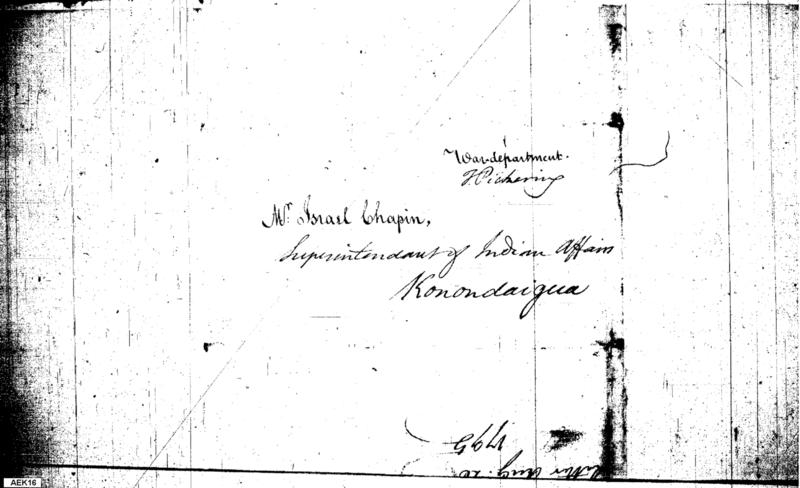 War department.
T Pickering
Mr. Israel Chapin,
Superintendant of Indian Affairs
Konondaigua
1795
Aug. 26
AEK16